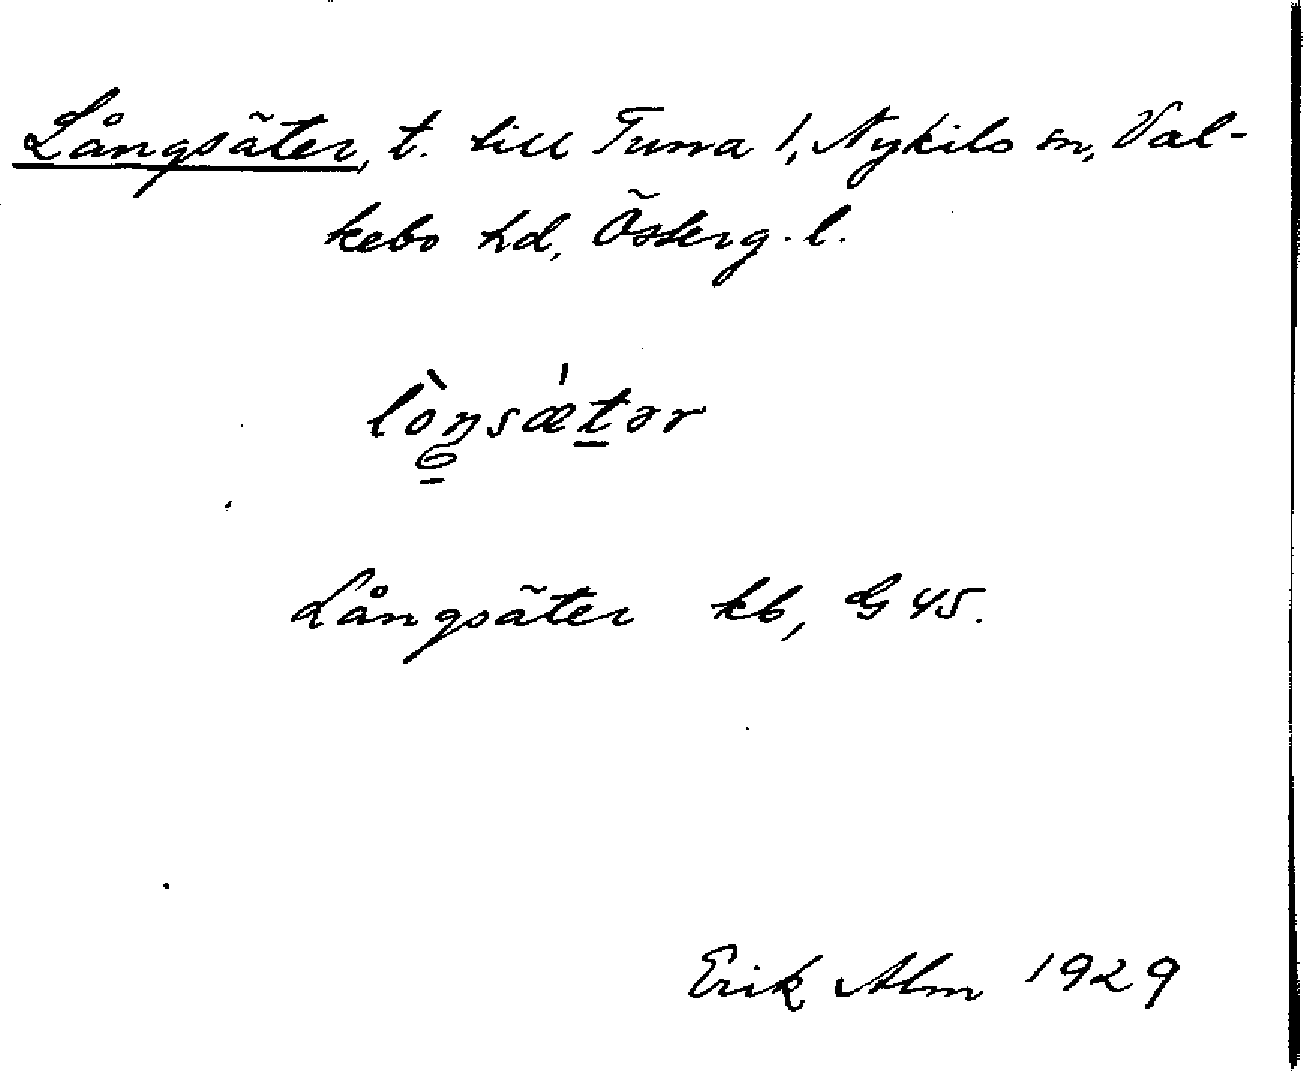 Långsäter, t. till Tuna 1, Nykils sn, Val-
kebo hd, Österg. l.
lòŋsæ̍tər
Långsäter kb, G 45.
Erik Alm 1929